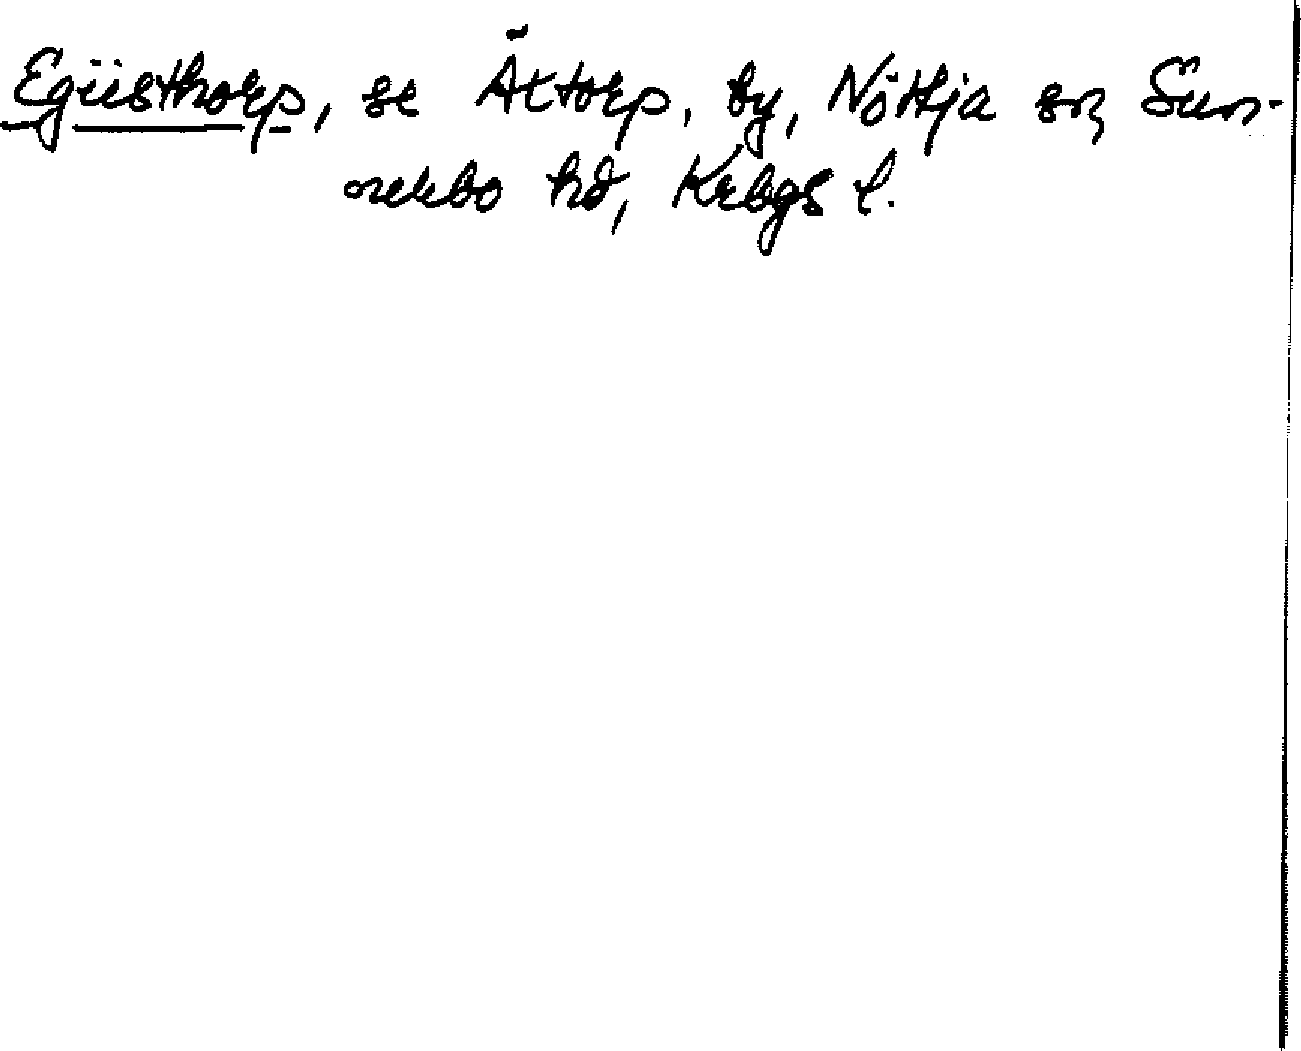 Egiisthorp, se Ättorp, by, Nöttja sn, Sun-
nerbo hd, Krbgs l.